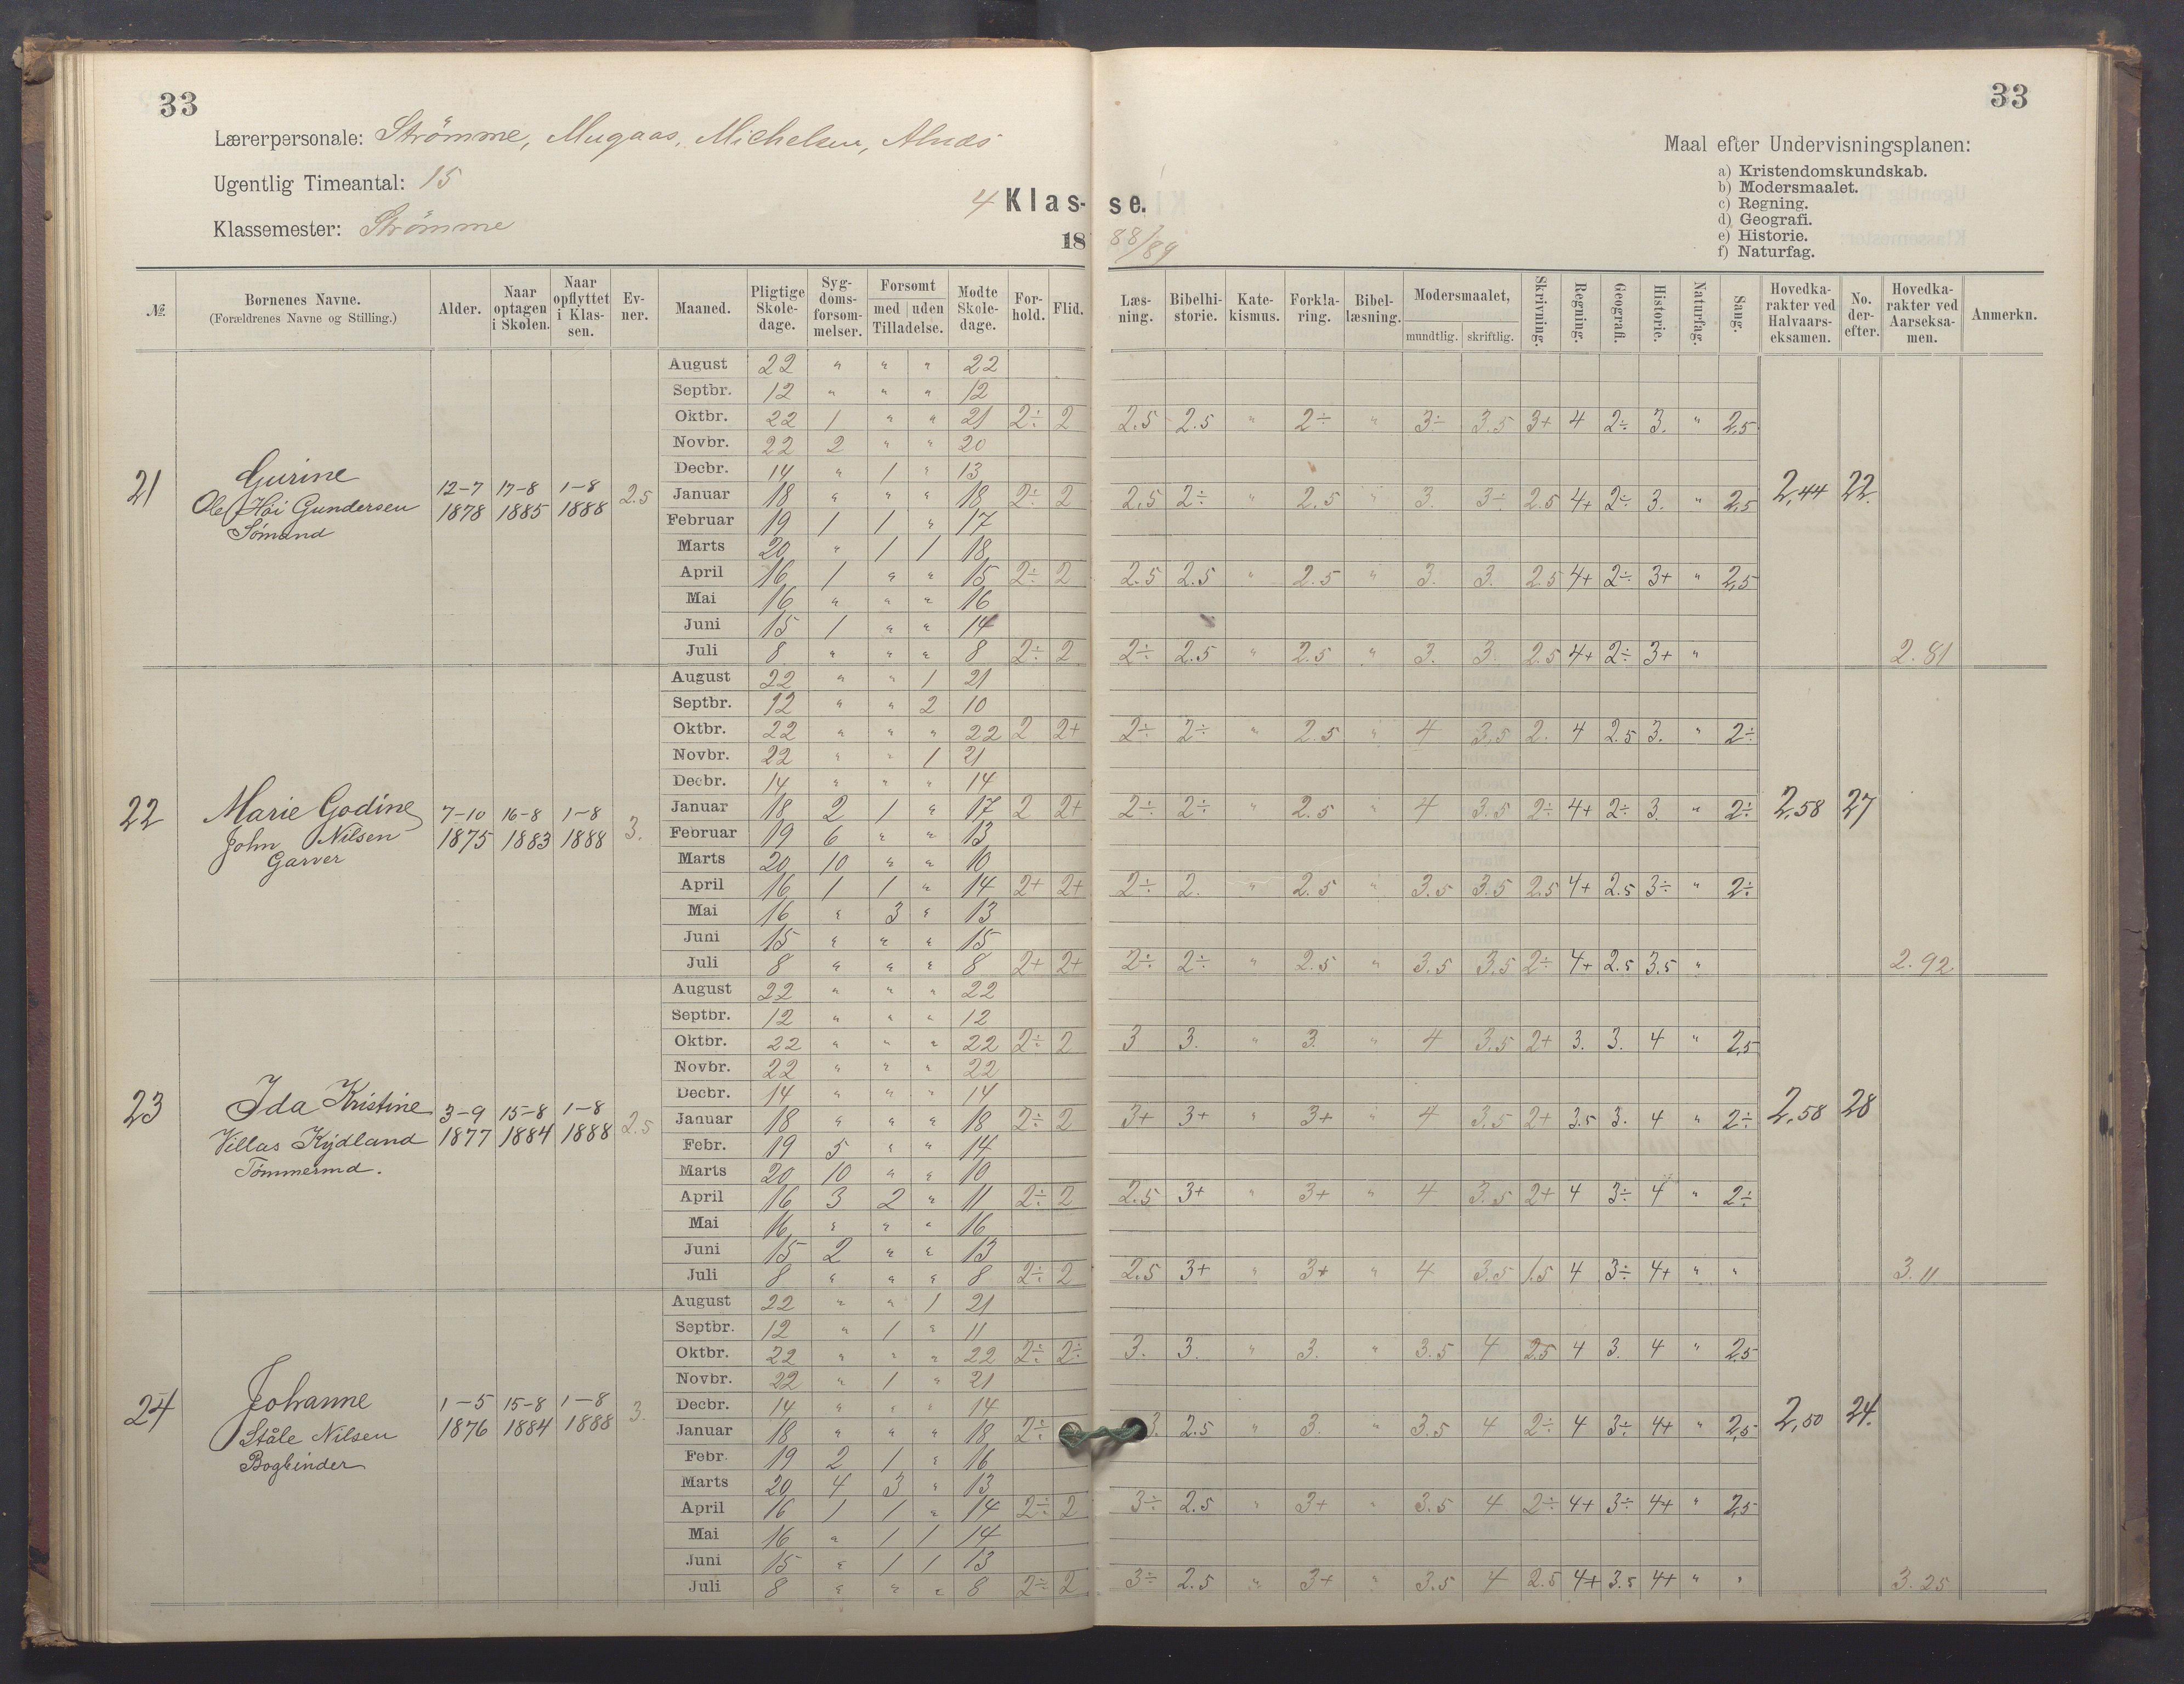 33
33
Lærerpersonale: Strömme, Mugaas, Michelsen,
Ugentlig Timeantal: 15
Klassemester: Strömme
4 Klas- se.
18 88/89
Maal efter Undervisningsplanen:
a) Kristendomskundskab.
b) Modersmaalet.
c) Regning.
d) Geografi.
e) Historie.
f) Naturfag.
№ Børnenes Navne. (Forældrenes Navne og Stilling.) Alder. Naar optagen i Skolen. Naar opflyttet i Klassen. Evner. Maaned. Pligtige Skoledage. Sygdomsforsømmelser. Forsømt med uden Tilladelse. Mødte Skoledage. Forhold. Flid. Læsning. Bibelhistorie. Katekismus. Forklaring. Bibellæsning. Modersmaalet, mundtlig. skriftlig. Skrivning. Regning. Geografi. Historie. Naturfag. Sang. Hovedkarakter ved Halvaarseksamen. No. derefter. Hovedkarakter ved Aarseksamen. Anmerkn.
21 Gurine
Ole Höi Gundersen
Sömand
12-7 1878 17-8 1885 1-8 1888 2.5
August 22 " " " 22
Septbr. 12 " " " 12
Oktbr. 22 1 " " 21 2÷ 2 2.5 2.5 " 2÷ " 3÷ 3.5 3+ 4 2÷ 3. " 2.5
Novbr. 22 2 " " 20
Decbr. 14 " 1 " 13
Januar 18 " " " 18 2÷ 2 2.5 2÷ " 2.5 " 3. 3÷ 2.5 4+ 2÷ 3. " 2.5 2,44 22.
Februar 19 1 1 " 17
Marts 20 " 1 1 18
April 16 1 " " 15 2÷ 2 2.5 2.5 " 2.5 " 3. 3. 2.5 4+ 2÷ 3+ " 2,5
Mai 16 " " " 16
Juni 15 1 " " 14
Juli 8 " " " 8 2÷ 2 2÷ 2.5 " 2.5 " 3. 3. 2.5 4+ 2÷ 3+ " 2.81
22 Marie Godine
John Nilsen
Garver
7-10 1875 16-8 1883 1-8 1888 3.
August 22 " " 1 21
Septbr. 12 " " 2 10
Oktbr. 22 " " " 22 2 2+ 2÷ 2÷ " 2.5 " 4 3.5 2. 4 2.5 3. " 2÷
Novbr. 22 " " 1 21
Decbr. 14 " " " 14
Januar 18 2 1 " 17 2 2+ 2÷ 2÷ " 2.5 " 4 3.5 2÷ 4+ 2÷ 3. " 2÷ 2,58 27
Februar 19 6 " " 13
Marts 20 10 " " 10
April 16 1 1 " 14 2+ 2+ 2÷ 2. " 2.5 " 3.5 3.5 2.5 4+ 2.5 3÷ " 2÷
Mai 16 " 3 " 13
Juni 15 " " " 15
Juli 8 " " " 8 2+ 2+ 2÷ 2÷ " 2.5 " 3.5 3.5 2÷ 4+ 2.5 3.5 " 2.92
23 Ida Kristine
Villas Kydland
Tömmermd.
3-9 1877 15-8 1884 1-8 1888 2.5
August 22 " " " 22
Septbr. 12 " " " 12
Oktbr. 22 " " " 22 2÷ 2 3 3. " 3. " 4 3.5 2+ 3. 3. 4 " 2,5
Novbr. 22 " " " 22
Decbr. 14 " " " 14
Januar 18 " " " 18 2÷ 2 3+ 3+ " 3+ " 4 3.5 2+ 3.5 3. 4 " 2÷ 2,58 28
Febr. 19 5 " " 14
Marts 20 10 " " 10
April 16 3 2 " 11 2÷ 2 2.5 3+ " 3+ " 4 3.5 2+ 4 3÷ 4 " 2÷
Mai 16 " " " 16
Juni 15 2 " " 13
Juli 8 " " " 8 2÷ 2 2.5 3+ " 3+ " 4 3.5 1.5 4 3÷ 4+ " " 3.11
24 Johanne
Ståle Nilsen
Bogbinder
1-5 1876 15-8 1884 1-8 1888 3.
August 22 " " 1 21
Septbr. 12 " 1 " 11
Oktbr. 22 " " " 22 2÷ 2÷ 3. 3. " 3. " 3.5 4 2.5 4 3. 4 " 2,5
Novbr. 22 " 1 " 21
Decbr. 14 " " " 14
Januar 18 " " " 18 2÷ 3. 2.5 " 3. " 3.5 4 2÷ 4 3÷ 4+ " 2,5 2,50 24.
Febr. 19 2 1 " 16
Marts 20 4 3 " 13
April 16 1 1 " 14 2÷ 2 3÷ 2.5 " 3+ " 3.5 4 2÷ 4+ 3÷ 4+ " 2,5
Mai 16 " 1 1 14
Juni 15 " 1 1 13
Juli 8 " " " 8 2÷ 2 3÷ 2.5 " 3+ " 3.5 4 2.5 4+ 3.5 4+ " " 3.25